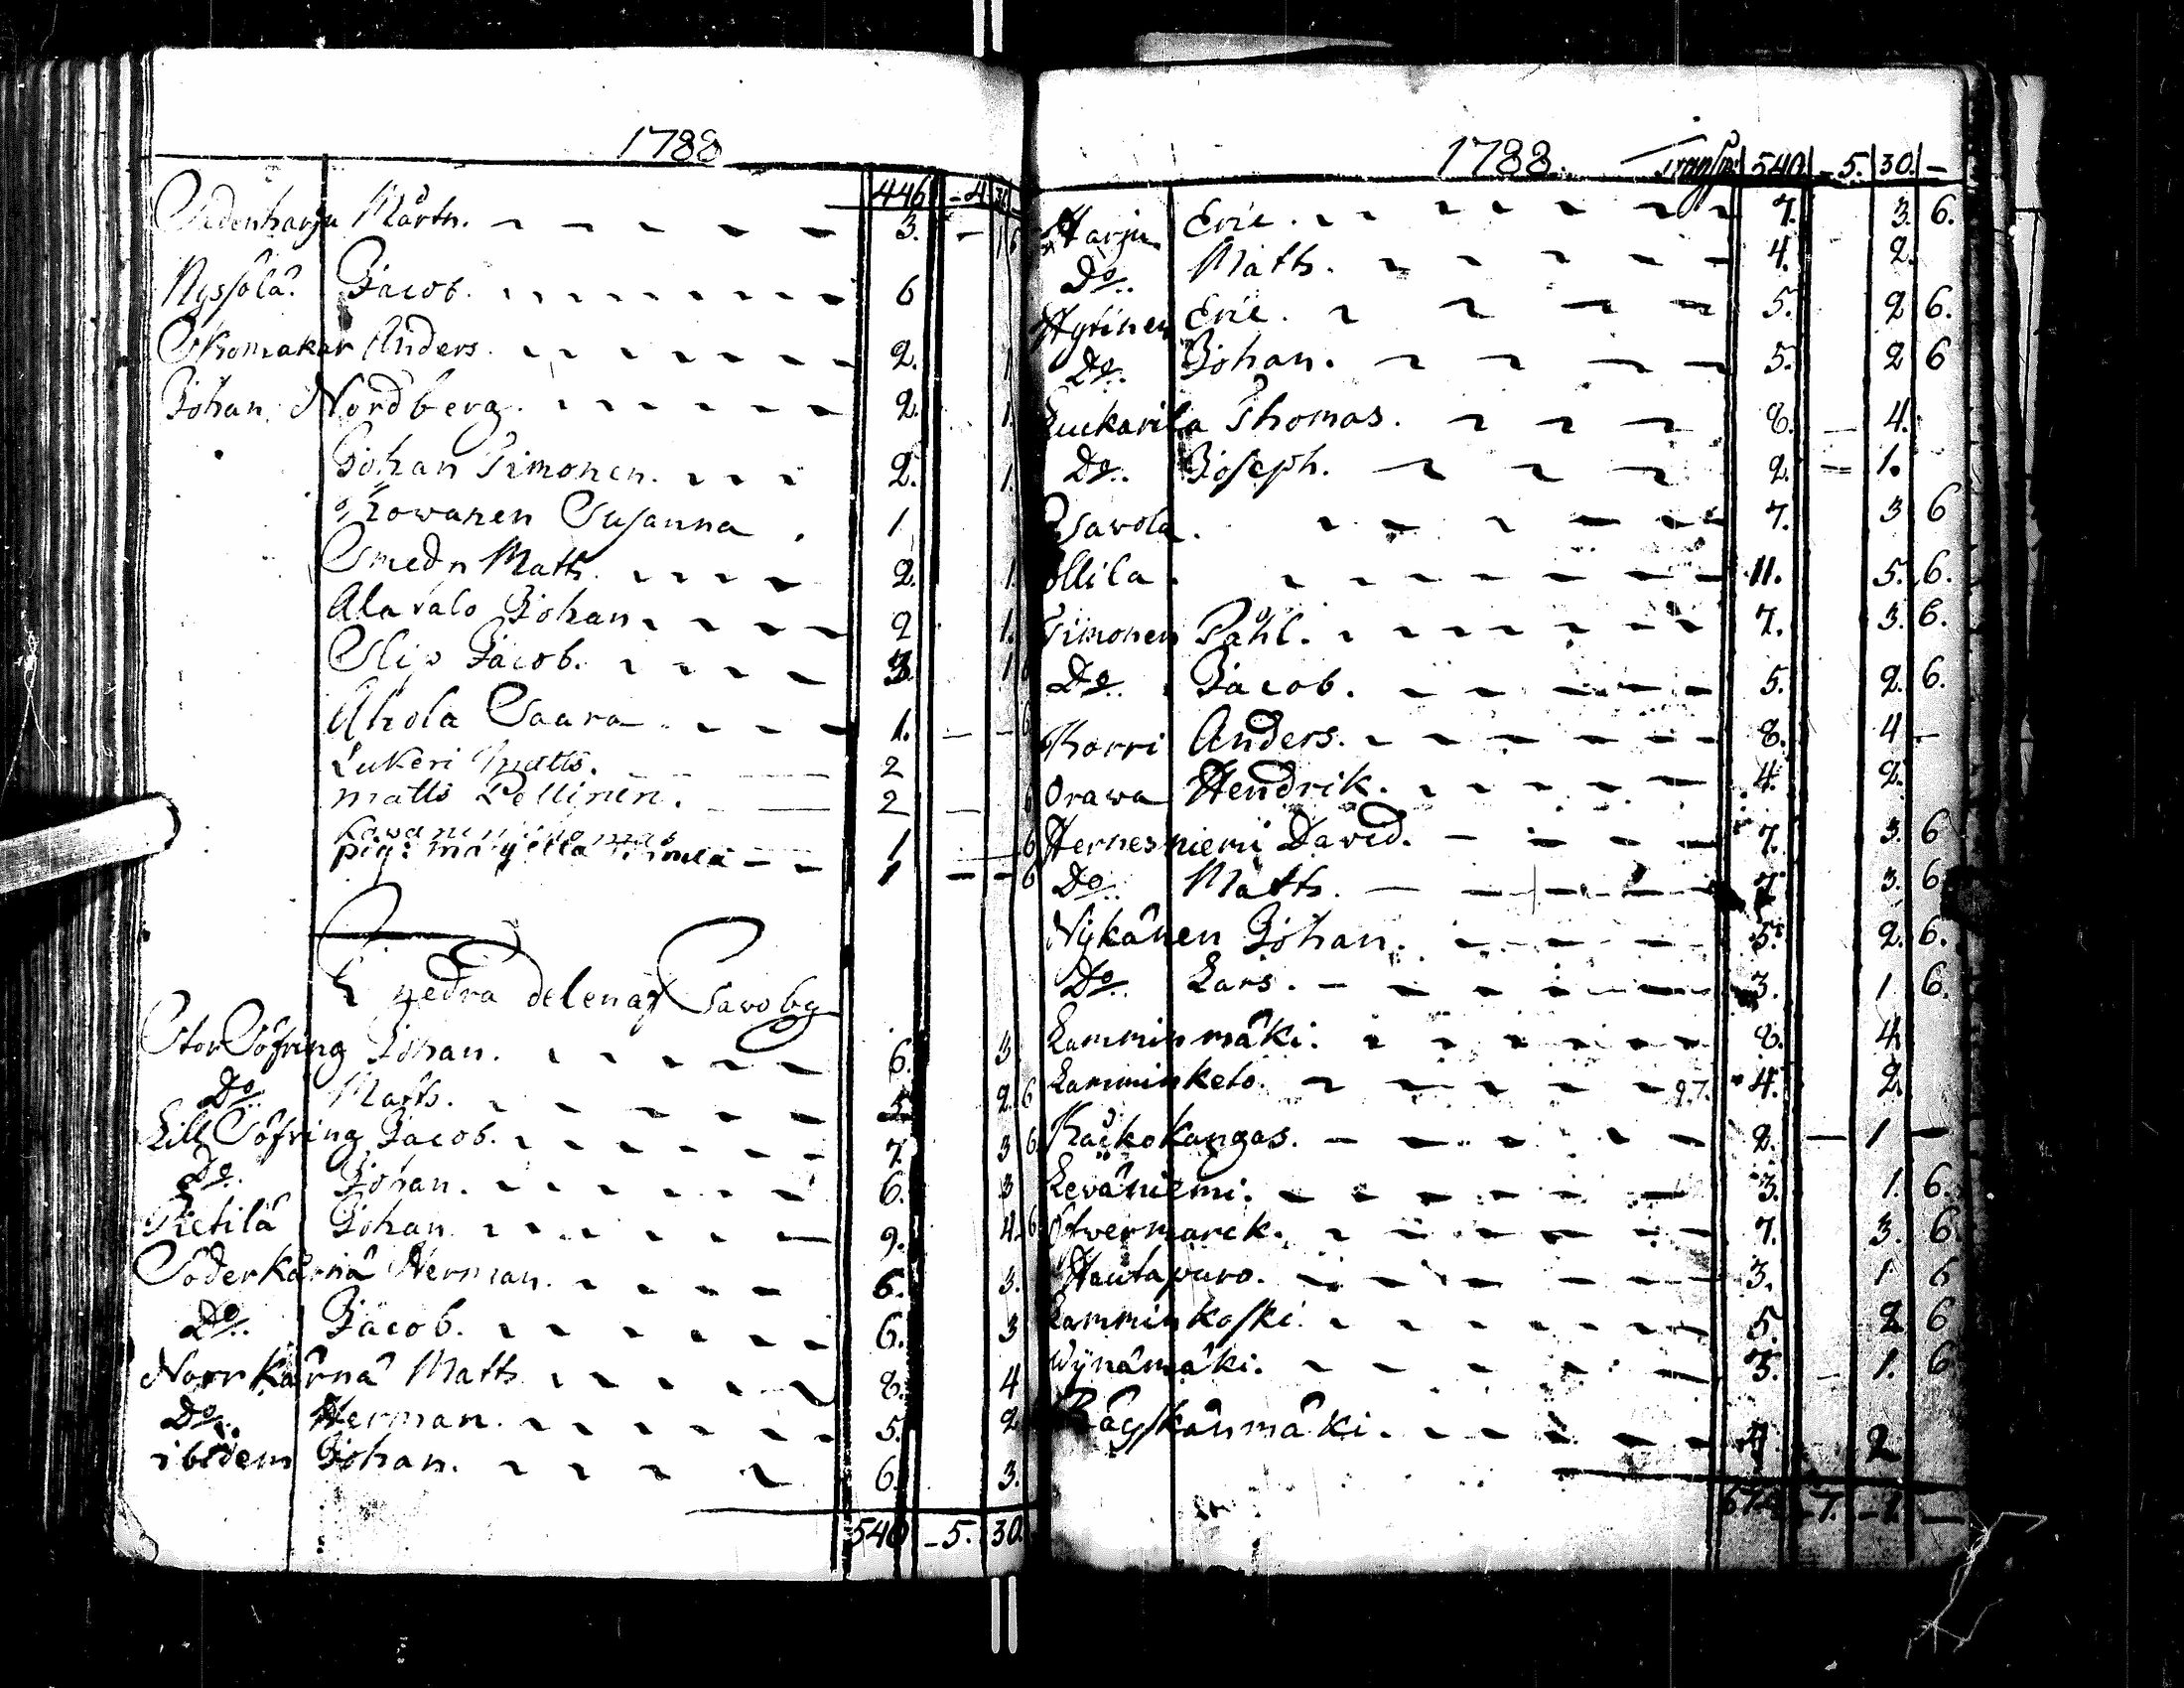 1788
446 - 4 31
Sedenharju Mårtn. 3. - 1 6
Nyssölä. Jacob. 6
Skomakar Anders. 2. 1
Johan Nordberg. 2. 1.
Johan Simonen. 2. 1.
Kowanen Susanna. 1
Smedn Matts. 2. 1.
Alavalo Johan. 2 1.
Slip Jacob. 3. 1 6
Ahola Saara 1. - - 6
Lukeri Matts. 2
Matts Pellinen. 2
1 6
pig: 1 - - 6
nedra delenaf Sawoby
Stor Söfring Johan. 6. 3
Do Matts. 5 2 6
Lill Söfring Jacob. 7. 3 6
Do. Johan. 6. 3
Pietilä Johan 9. 4. 6
Söderkärnä Herman. 6. 3.
Do. Jacob. 6. 3
Norrkärnä Matts 8. 4
Do. Herman. 5. 2
ibidem Johan. 6. 3.
540 - 5. 30.
1788. Transp: 540 - 5. 30. -
Harju Eric. 7. 3. 6.
Do. Matts. 4. 2.
Hytinen Eric. 5. 2 6.
Do. Johan. 5. 2 6
Luukarila Thomas. 8. - 4.
Do. Joseph. 2. - 1.
Savola. 7. 3 6
Ollila. 11. 5. 6.
Simonen Påhl. 7. 3. 6.
Do. Jacob. 5. 2. 6.
Korri Anders. 8. 4 -
Orawa Hendrik. 4. 2.
Hernesniemi David. 7. 3. 6
Do. Matts. 7. 3. 6
Nykänen Johan. 5. 2. 6.
Do. Lars. 3. 1 6.
Lamminmäki. 8. 4.
Lamminketo. 4. 2
Kackokangas. 2. - 1 -
Leväniemi. 3. 1. 6.
Öfvermarck. 7. 3. 6
Hautapuro. 3. 1 6
Lamminkoski. 5. 2 6
Wynämäki. 3. - 1. 6
Räyskänmäki. 4. 2
- 7. - 1 -